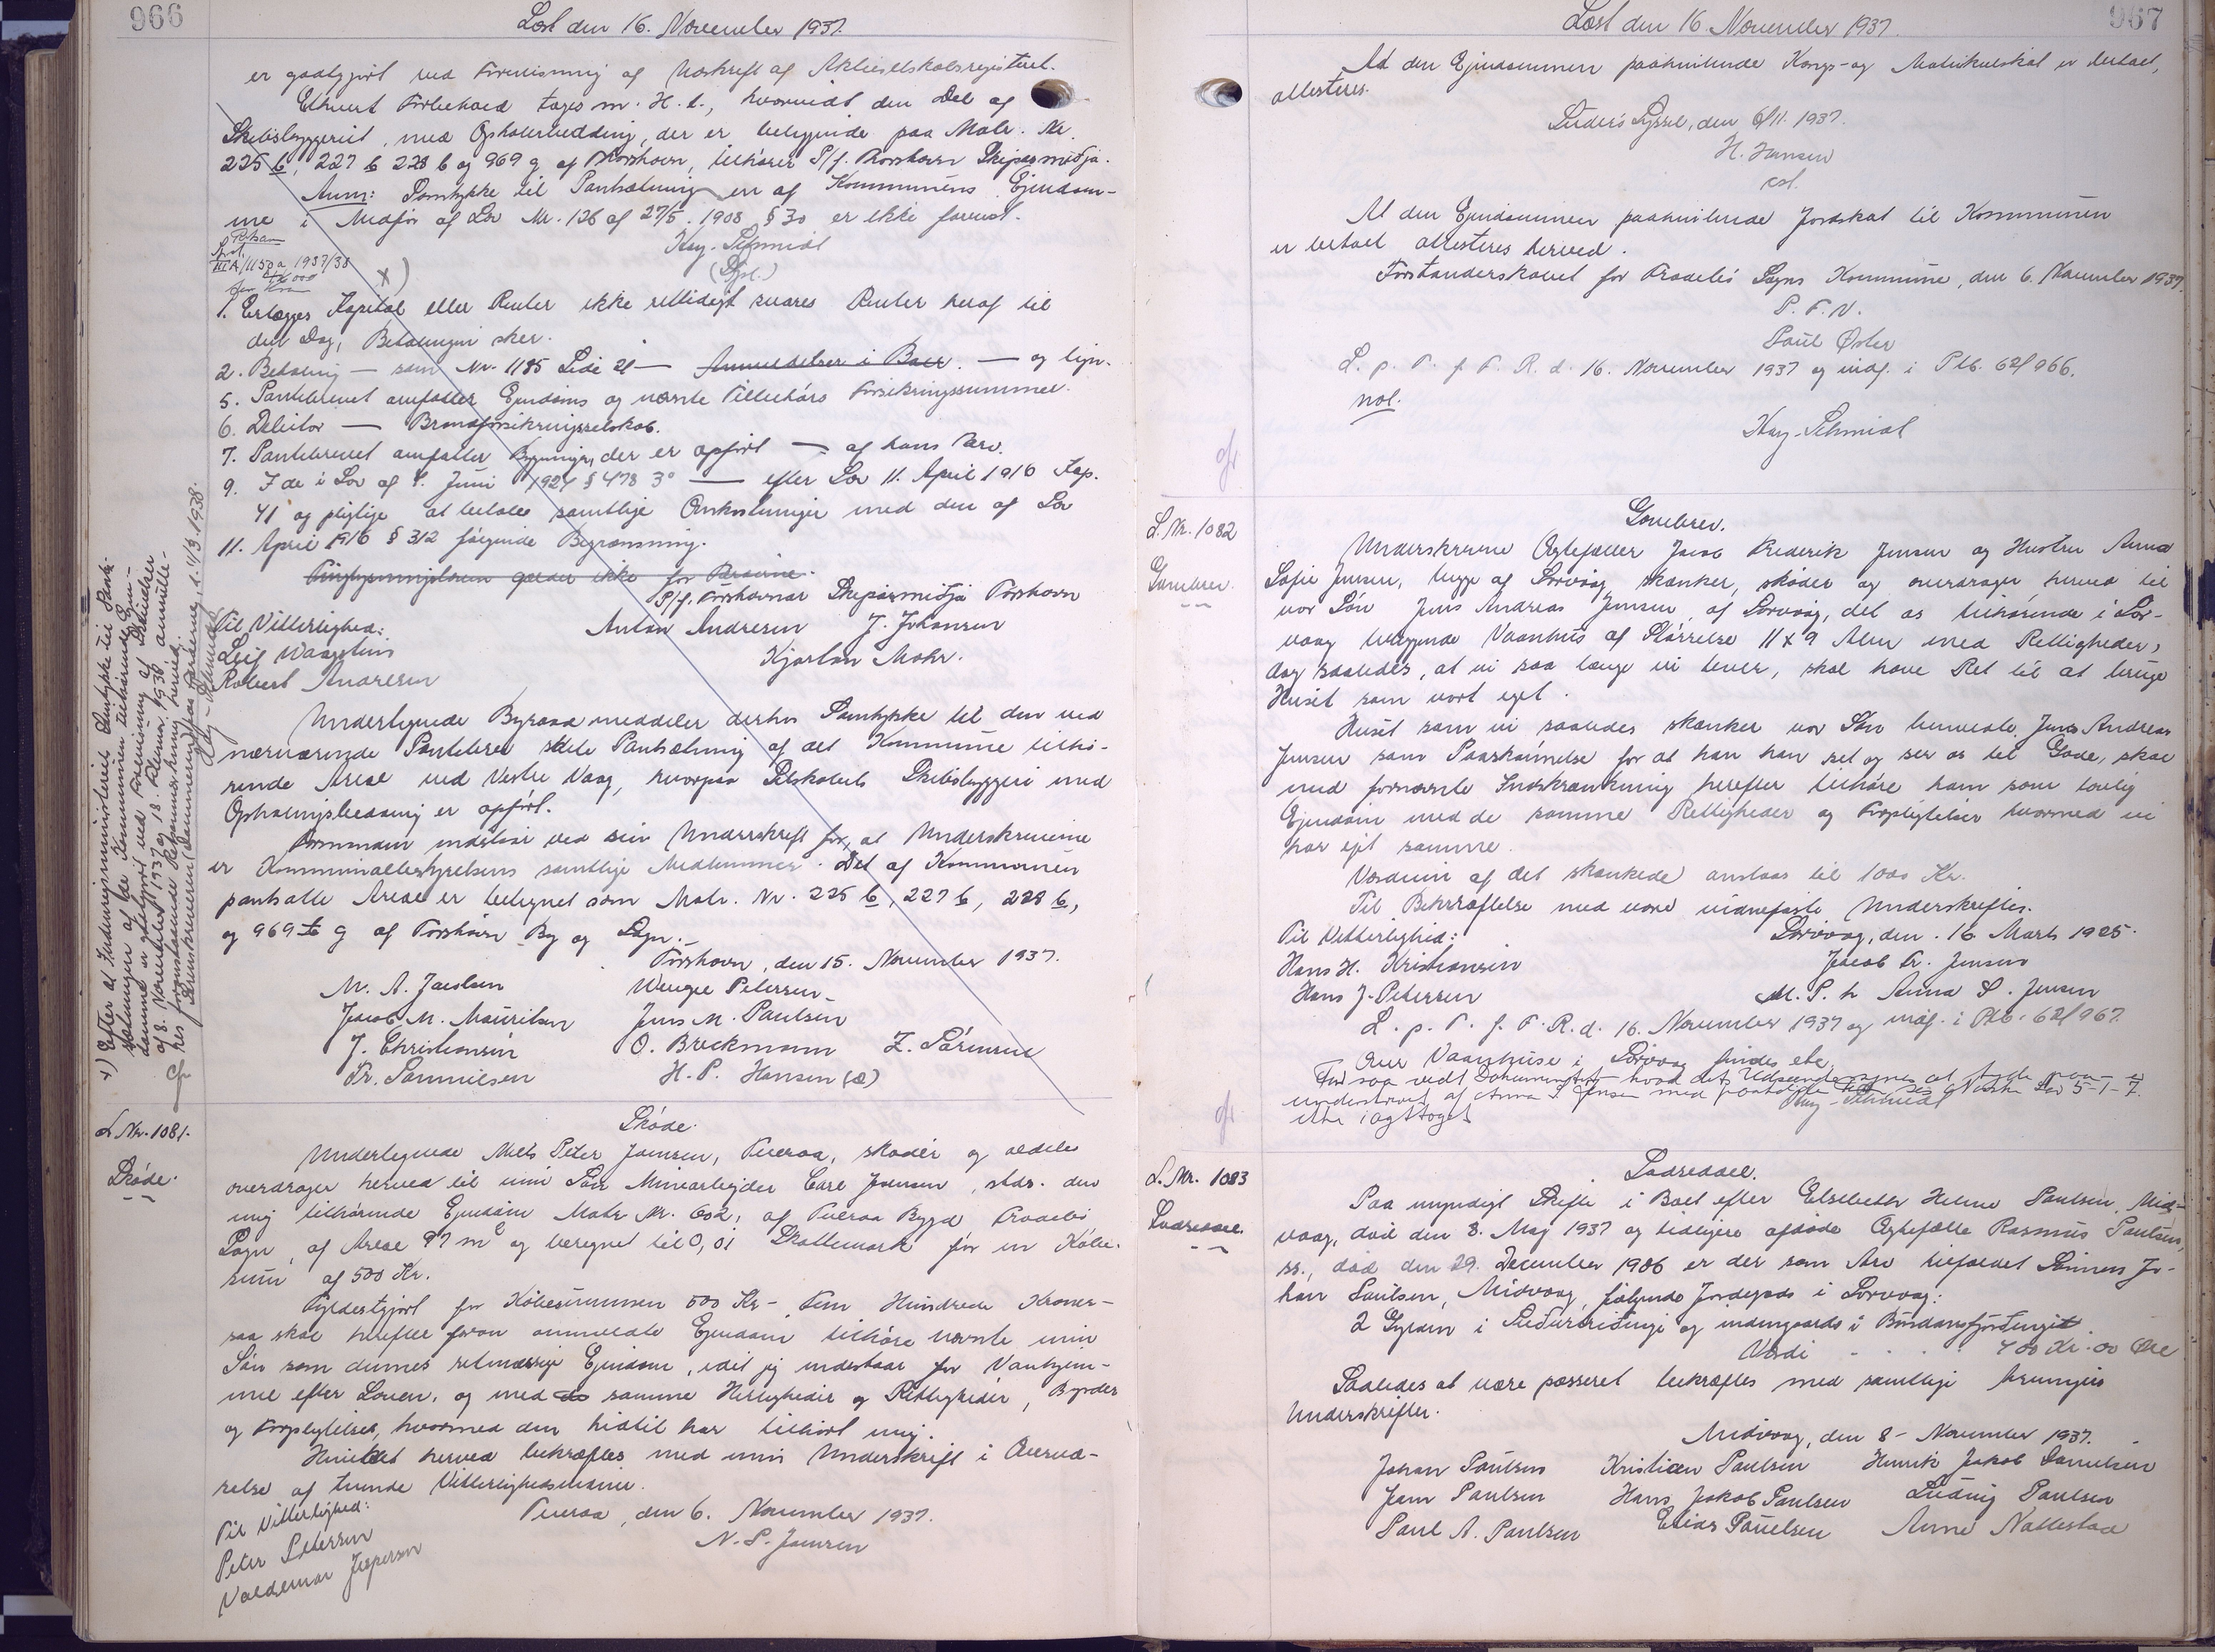 966
Læst den 16. November 1937.
er godtgjort ved Forevisning af Udskrift af Aktieselskabsregistret.
Ethvert Forbehold tages m. H. t., hvorvidt den Del af
Skibsbyggeriet, med Ophalerbedding, der er beliggende paa Matr. Nr.
225 b, 227 b 228 b og 969 g af Thorshavn, tilhører P/f. Thorshavn Skipasmiðja.
Anm: Samtykke til Pantsætning af Kommunens Ejendom-
me i Medfør af Lov Nr. 126 af 27/5. 1908 § 30 er ikke forevist.
Kay-Schmidt
1. Erlægges Kapital eller Renter ikke rettidigt svares Renter heraf til
den Dag, Betalingen sker.
2. Betaling — som Nr. 1185 Side 21 — Anmeldelser i Boet. — og lign.
5. Pantebrevet omfatter Ejendoms og nævnte Tilbehørs Forsikringssummer.
6. Debitor — Brandforsikringsselskab.
7. Pantebrevet omfatter Bygninger, der er opført — af hans Arv.
9. I de i Lov af 8. Juni 1921 § 478 3° — efter Lov 11. April 1916 Kap.
41 og pligtige at betale samtlige Omkostninger med den af Lov
11. April 1916 § 312 følgende Begrænsning.
P/f. Tórshavnar Skipasmiðja Tórshavn
Til Vitterlighed: Anton Andresen J. Johansen
Leif Waagstein Kjartan Mohr.
Robert Andresen
Undertegnede Byraad meddeler derhos Samtykke til den ved
nærværende Pantebrev skete Pantsætning af det Kommune tilhø-
rende Areal ved Vestre Vaag, hvorpaa Selskabets Skibsbyggeri med
Ophalingsbedding er opført.
Formanden indestaar ved sin Underskrift for, at Underskriverne
er Kommunalbestyrelsens samtlige Medlemmer. Det af Kommunen
pantsatte Areal er betegnet som Matr. Nr. 225 b, 227 b, 228 b,
og 969 g af Tórshavn By og Sogn.
Tórshavn, den 15. November 1937.
M. A. Jacobsen Wenzel Petersen
Jacob M. Mauritsen Jens M. Poulsen
J. Christiansen O. Breckmann Z. Sørensen
Fr. Samuelsen H. P. Hansen (æ)
x) Efter at Indenrigsministeriets Samtykke til Pant-
sætningen af de Kommunen tilhørende Ejen-
domme er godtgjort ved Forevisning af Skrivelser
af 8. November 1937 og 18. Februar 1938
L. Nr. 1081.
Skøde.
Skøde.
Undertegnede Niels Peter Joensen, Tveraa, skøder og aldeles
overdrager herved til min Søn Minearbejder Carl Joensen, stds. den
mig tilhørende Ejendom Matr. Nr. 602, af Tveraa Bygd Frodebø
Sogn, af Areal 97 m² og beregnet til 0,01 Skattemark for en Købe-
sum af 500 Kr.
Fyldestgjort for Købesummen 500 Kr- Fem Hundrede Kroner-
saa skal herefter foran anmeldte Ejendom tilhøre nævnte min
Søn som dennes retmæssige Ejendom, idet jeg indestaar for Vanhjem-
mel efter Loven, og med samme Herligheder og Rettigheder, Byrder
og Forpligtelser, hvormed den hidtil har tilhørt mig.
Hvilket herved bekræftes med min Underskrift i Overvæ-
relse af tvende Vitterlighedsvidner.
Til Vitterlighed: Tveraa, den 6. November 1937.
Peter Petersen N. P. Joensen
Valdemar Jespersen
967
Læst den 16. November 1937.
At den Ejendommen paahvilende Konge- og Matrikulskat er betalt,
attesteres.
Suderø Syssel, den 6/11. 1937.
H. Hansen
cst.
At den Ejendommen paahvilende Jordskat til Kommunen
er betalt attesteres herved.
Forstanderskabet for Frodebø Sogns Kommune, den 6. November 1937.
P. F. V.
Poul Øster
L. p. T. f. F. R. d. 16. November 1937 og indf. i Ptb. 62/966.
not.
Kay-Schmidt
L. Nr. 1082
Gavebrev.
Gavebrev.
Underskrevne Ægtefæller Jacob Frederik Jensen og Hustru Anna
Sofie Jensen, begge af Sørvaag, skænker, skøder og overdrager herved til
vor Søn Jens Andreas Jensen, af Sørvaag, det os tilhørende i Sør-
vaag beliggende Vaanhus af Størrelse 11 x 9 Alen med Rettigheder,
dog saaledes, at vi saa længe vi lever, skal have Ret til at bruge
Huset som vort eget.
Huset som vi saaledes skænker vor Søn benævnte Jens Andreas
Jensen som Paaskønnelse for at han har set og ser os til Gode, skal
med fornævnte Indskrænkning herefter tilhøre ham som lovlig
Ejendom med de samme Rettigheder og Forpligtelser hvormed vi
har ejet samme.
Værdien af det skænkede anslaas til 1000 Kr.
Til Bekræftelse med vore vidnefaste Underskrifter.
Til Vitterlighed: Sørvaag, den 16 Marts 1925.
Hans H. Kristiansen Jacob Fr. Jensen
Hans J. Petersen M. P. h Anna S. Jensen
L. p. T. f. F. R. d. 16. November 1937 og indf. i Ptb. 62/967.
Over Vaanhuse i Sørvaag findes ebl.
L. Nr. 1083
Lodseddel.
Lodseddel.
Paa myndigt Skifte i Boet efter Elsebeth Helene Poulsen, Mid-
vaag, død den 8. Maj 1937 og tidligere afdøde Ægtefælle Rasmus Poulsen,
ss., død den 29. December 1906 er der som Arv tilfaldet Sønnen Jo-
han Poulsen, Midvaag, følgende Jordegods i Sørvaag:
2 Gylden i og indangaards i
Værdi - . . . 400 Kr. 00 Øre
Saaledes at være passeret bekræftes med samtlige Arvingers
Underskrifter.
Midvaag, den 8- November 1937.
Johan Poulsen Kristian Poulsen Henrik Jakob Danielsen
Joen Poulsen Hans Jakob Poulsen Ludvig Poulsen
Poul A. Poulsen Elias Poulsen Anne Nattestad